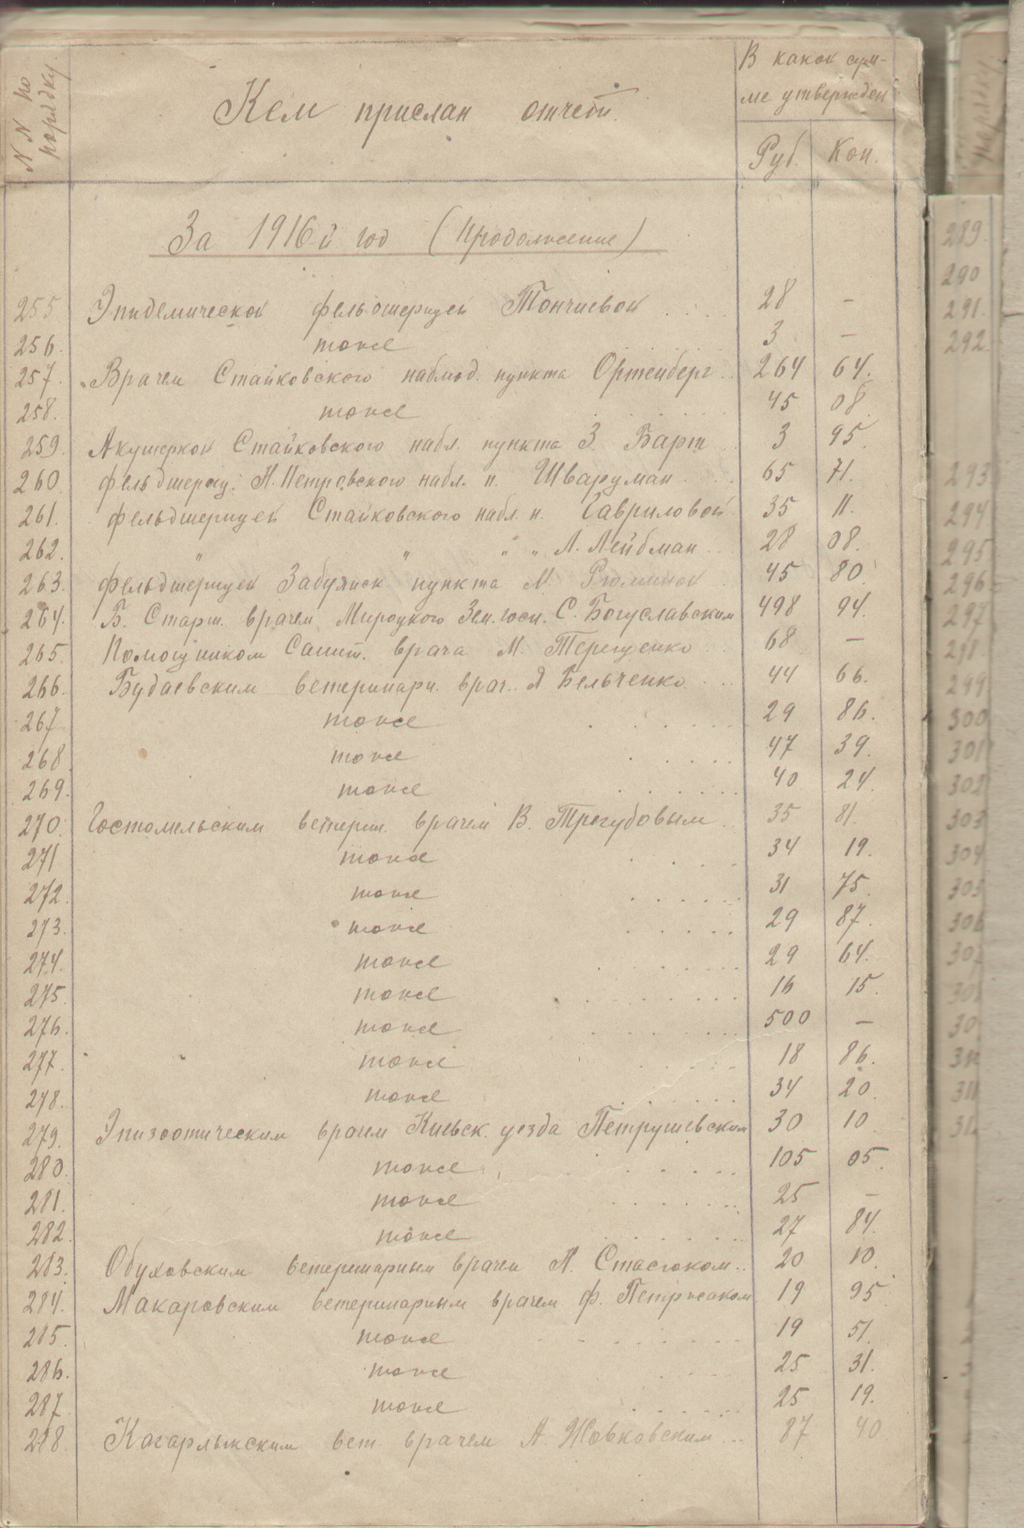 N N по порядку.
Кем прислан отчет
В какой сум-
ме утвержден
Руб. Коп.
За 1916й год (Продолжение)
255. Эпидемической фельдшерицей Тончиевой 28 —
256. тоже 3 —
257. Врачем Стайковского наблюд. пункта Ортенберг 264 64.
258. тоже 45 08
259. Акушеркой Стайковского набл. пункта З. Барт 3 95.
260. фельдшериц. П. Петровского набл. п. Шварцман 65 71.
261. фельдшерицей Стайковского набл п. Гавриловой 35 11.
262. " " " " Л. Лейбман 28 08.
263. фельдшерицей пункта М. 45 80
264. Б. Старш. врачем Мироцкого Зем. госп. С. Богуславским 498 94.
265. Помощником Санит. врача М. Терещенко 68 —
266. Будаевским ветеринарн. врач. Я Бельченко 44 66.
267 тоже 29 86.
268 тоже 47 39.
269. тоже 40 24.
270. Гостомельским ветерин. врачем В. Трегубовым 35 81.
271 тоже 34 19.
272. тоже 31 75
273. тоже 29 87.
274. тоже 29 64.
275. тоже 16 15.
276. тоже 500 —
277. тоже 18 86.
278. тоже 34 20.
279. Эпизоотическим врачем Киевск. уезда Петрушевским 30 10.
280. тоже 105 05.
281. тоже 25 —
282. тоже 27 84.
283. Обуховским ветеринарным врачем А. Стасюком 20 10.
284. Макаровским ветеринарным врачем Ф. 19 95
285. тоже 19 51.
286. тоже 25 31.
287. тоже 25 19.
288. Кагарлыкским вет. врачем А. Жовковским 87 40
289.
290
291.
292.
293
294
295
296
297
298
299
300
301
302
303
304
305
306